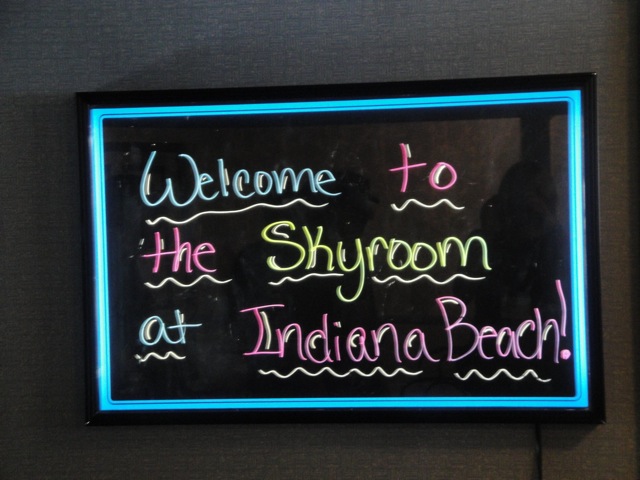 Welcome to
the Skyroom
at Indiana Beach!